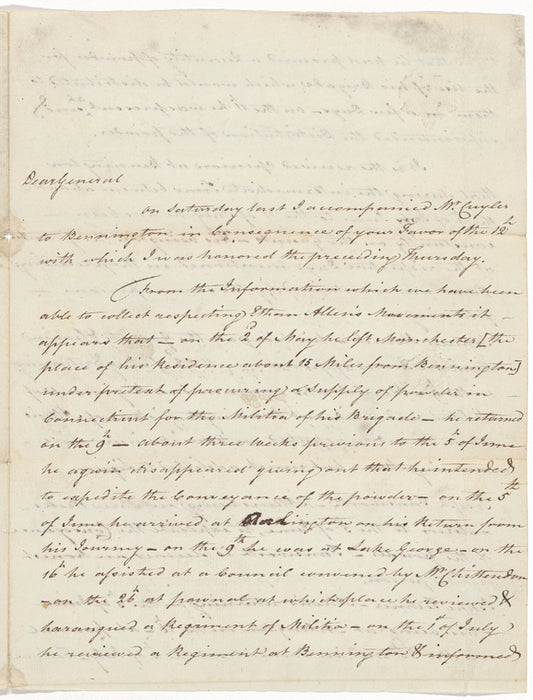 Dear General
on Saturday last I accompanied Mr Cuyler
to Bennington in Consequence of your Favor of the 12th
with which I was honored the preceding Thursday.
From the Information which we have been
able to collect respecting Ethan Allen's Movements it
appears that — on the 2d of May he left Manchester [the
place of his Residence about 15 Miles from Bennington]
under pretext of procuring a Supply of powder in
Connecticut for the Militia of his Brigade — he returned
on the 9th — about three Weeks previous to the 5th of June
he again disappeared giving out that he intended
to expedite the Conveyance of the powder — on the 5th
of June he arrived at Arlington on his Return from
his Journey — on the 9th he was at Lake George — on the
16th he assisted at a Council convened by Mr Chittendon
— on the 26th at pownal at which place he reviewed &
harangued a Regiment of Militia — on the 1st of July
he reviewed a Regiment at Bennington & informed